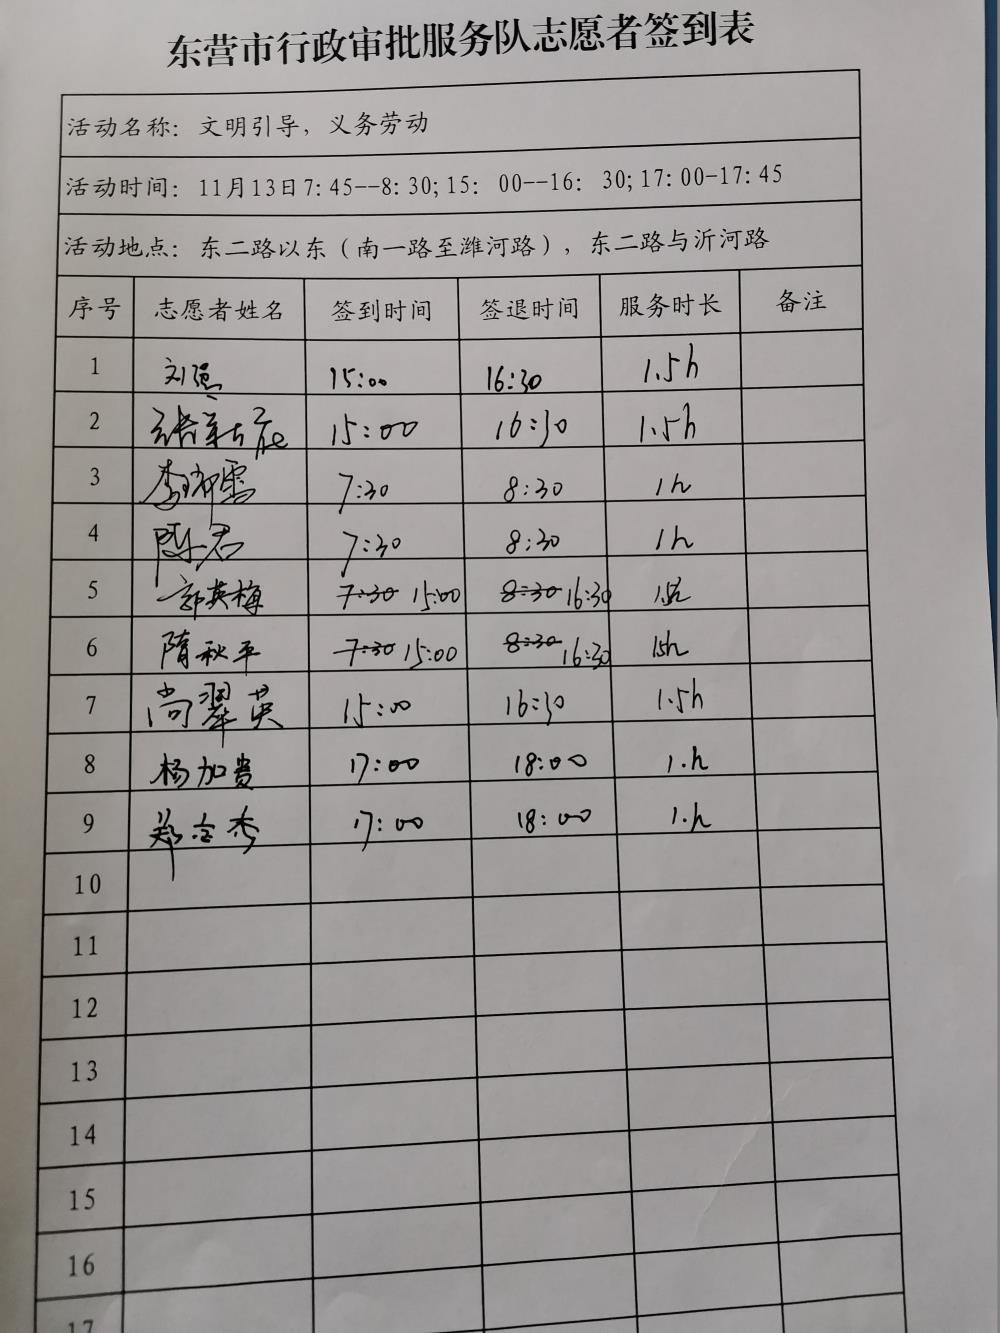 东营市行政审批服务队志愿者签到表
活动名称：文明引导，义务劳动
活动时间：11月13日7:45--8:30;15：00--16：30;17:00-17:45
活动地点：东二路以东（南一路至潍河路），东二路与沂河路
序号 志愿者姓名 签到时间 签退时间 服务时长 备注
1 刘强 15:00 16:30 1.5h
2 15:00 16:30 1.5h
3 7:30 8:30 1h
4 陈君 7:30 8:30 1h
5 郭英梅 7:30 15:00 8:30 16:30 1.5h
6 隋秋平 7:30 15:00 8:30 16:30 1.5h
7 尚翠英 15:00 16:30 1.5h
8 杨加贵 17:00 18:00 1.h
9 17:00 18:00 1.h
10
11
12
13
14
15
16
17